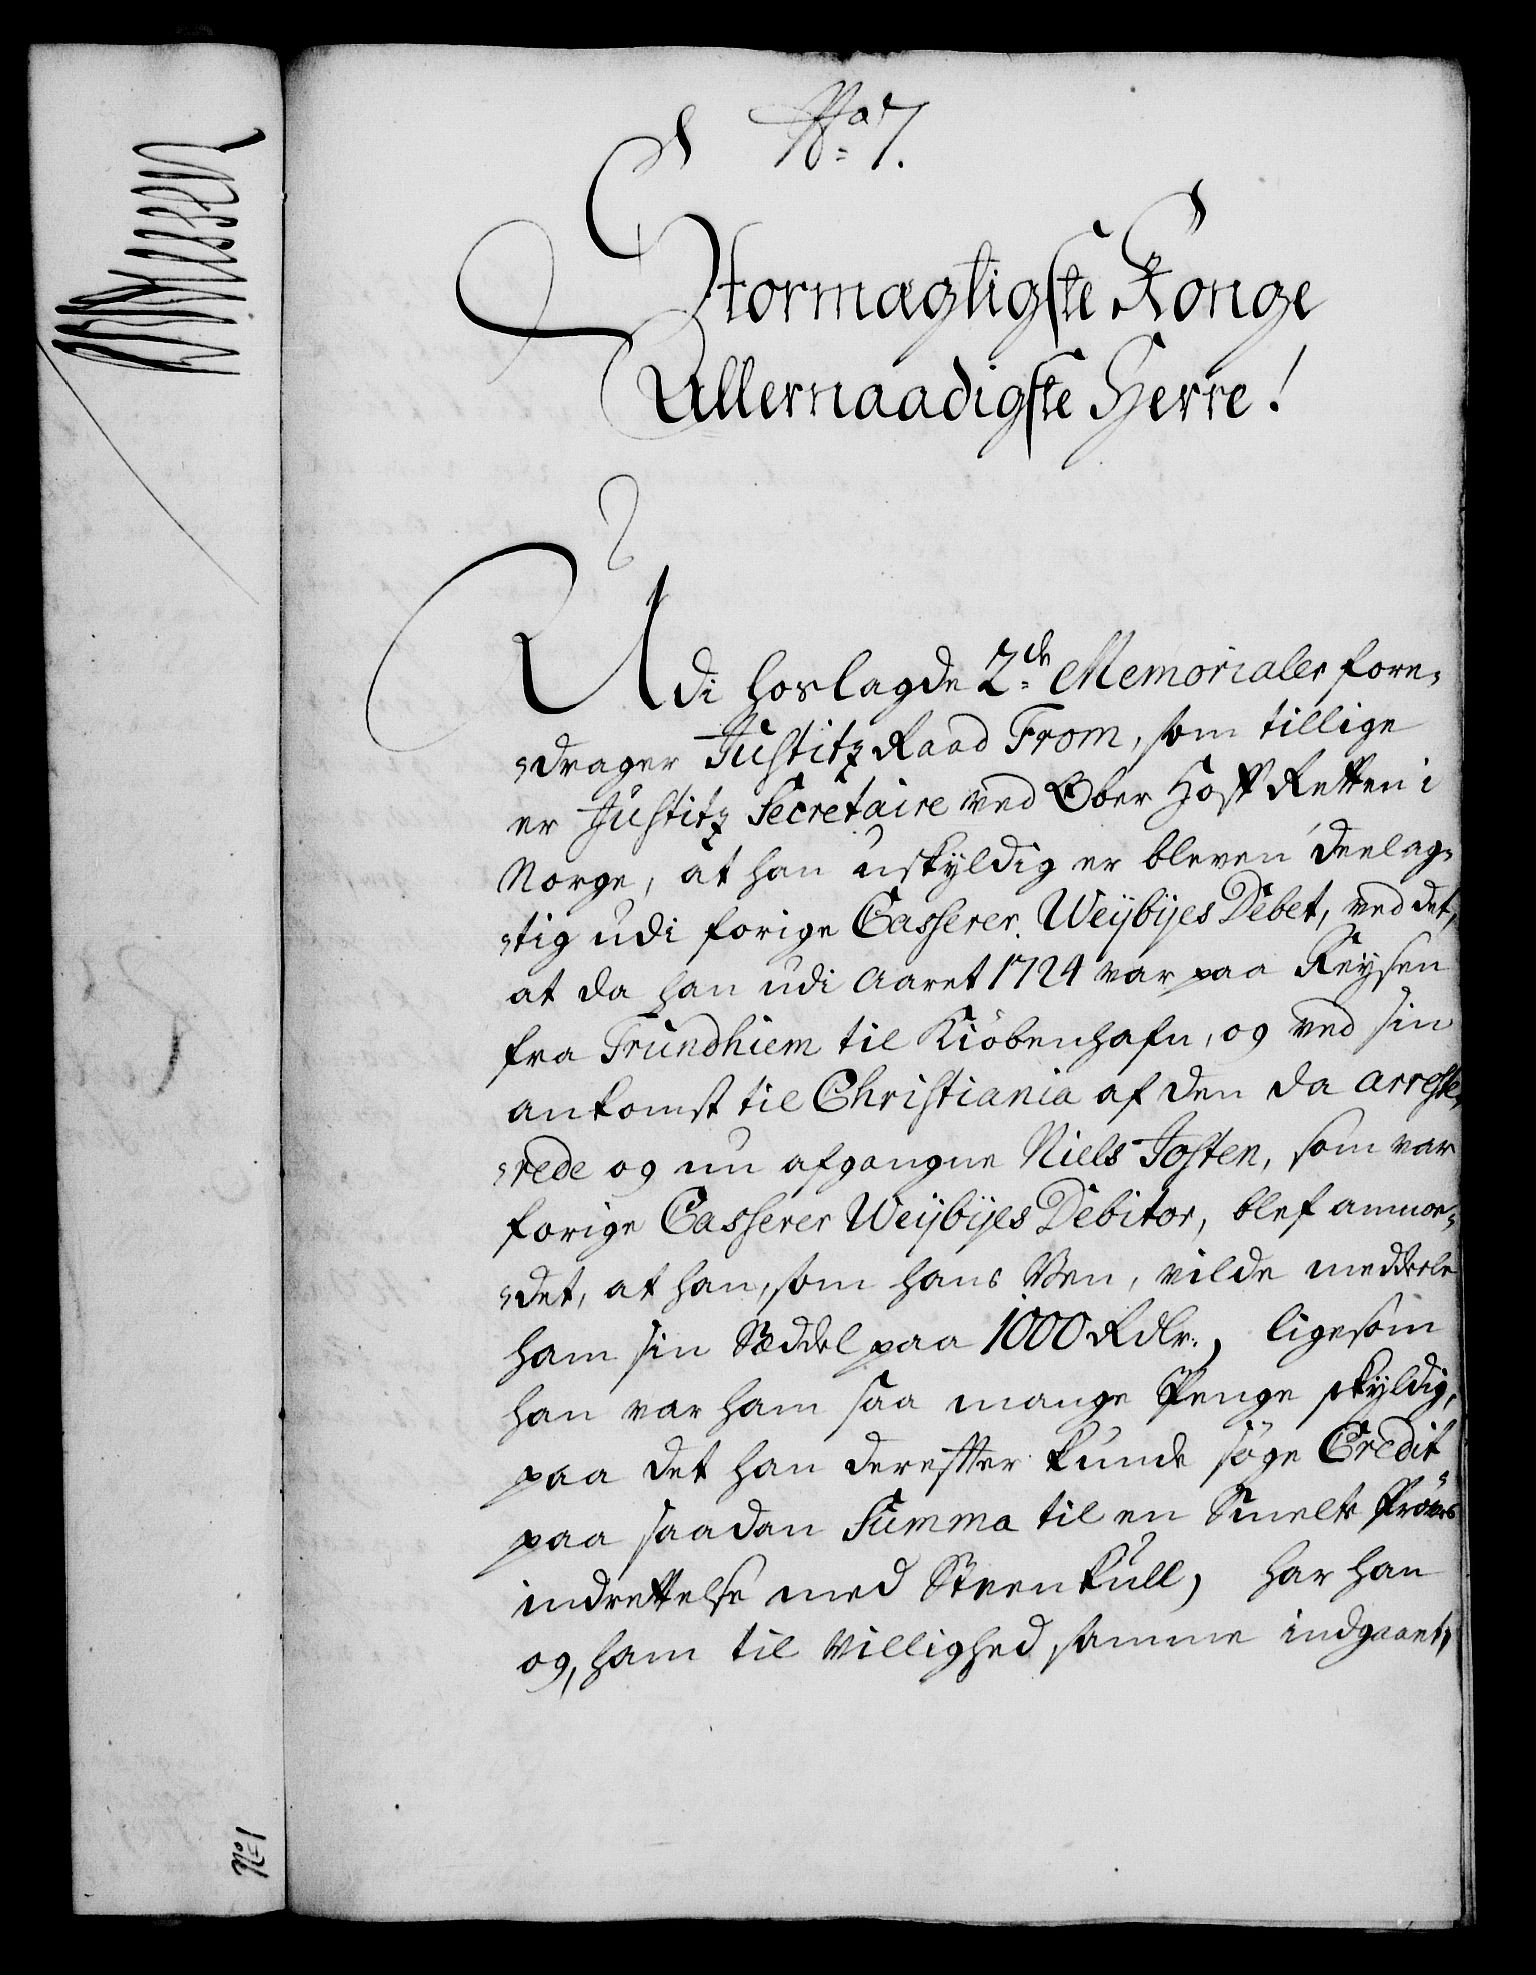 No 7.
Stormægtigste Konge
Allernaadigste Herre!
Udi hoslagde 2de Memorialer fore-
drager Justitz Raad From, som tillige
er Justitz Secretaire ved Ober Hoff Retten i
Norge, at han uskyldig er bleven deelag-
tig udi forige Casserer Weijbijes Debet, ved det,
at da han udi Aaret 1724 var paa Reysen
fra Trundhiem til Kiöbenhafn, og ved sin
ankomst til Christiania af den da arreste-
rede og nu afgangne Niels Josten, som var
forige Casserer Weijbijes Debitor, blef anmo-
det, at han, som hans Ven, vilde meddeele
ham sin Seddel paa 1000 Rdlr., ligesom
han var ham saa mange Penge skyldig,
paa det han derefter kunde söge Credit
paa saadan Summa til en Smelte Pröves
indrettelse med Steenkull, har han
og, ham til Villighed, samme indgaaet,
No 1